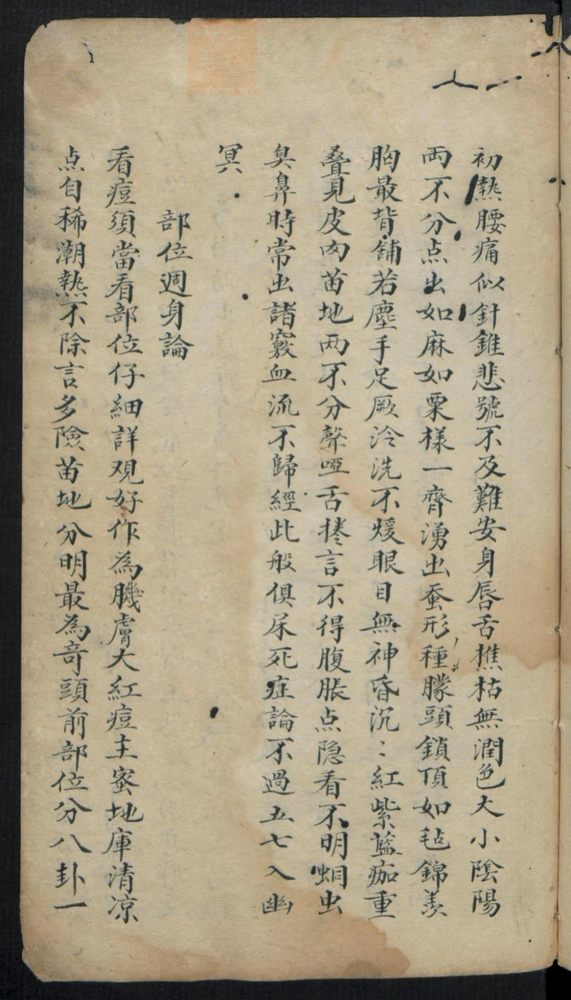 初熱腰痛似針錐悲號不及難安身唇舌樵枯無潤色大小陰陽
両不分点出如麻如粟樣一齊湧出蚕形種朦頭鎖頂如毡錦美
胸最背鋪若塵手足厥冷洗不煖眼目無神昏沉：紅紫藍痂重
叠見皮肉苗地两不分聲啞舌捲言不得腹脹点隐看不明蛔虫
臭鼻時常出諸竅血流不歸經此般俱屎死症論不過五七入幽
冥
部位週身論
看痘須當看部位仔細詳观好作為膿膚大紅痘主密地庫清凉
点自稀潮熱不除言多險苗地分明最為竒頭前部位分八卦一